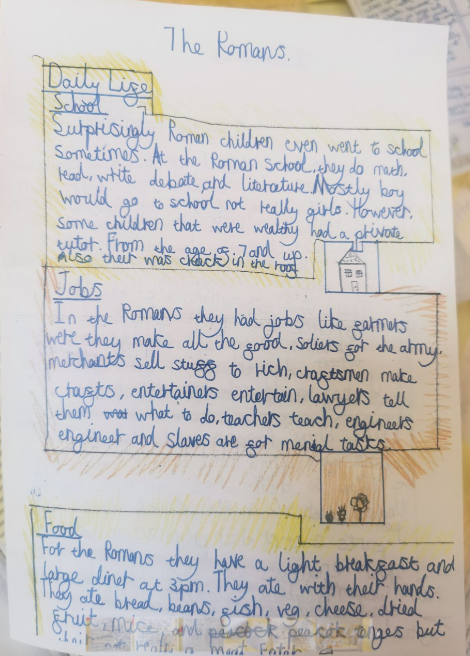 The Romans.
Daily Life
School
Surprisingly Roman children even went to school
sometimes. At the Roman School, they do math,
read, write debate and literature. Mostly boy
would go to school not really girls. However,
some children that were wealthy had a private
tutor. From the age of 7 and up.
Also their was in the
Jobs
In the Romans they had jobs like farmers
were they make all the good, soliers for the army,
merchants sell stuff to rich, craftsmen make
crafts, entertainers entertain, lawyers tell
them what to do, teachers teach, engineers
engineer and Slaves are for menial tasks
Food
For the Romans they have a light breakfast and
large diner at 3pm. They ate with their hands.
They ate bread, beans, fish, veg, cheese, dried
fruit, mice and peacock tonges but
not really a meat